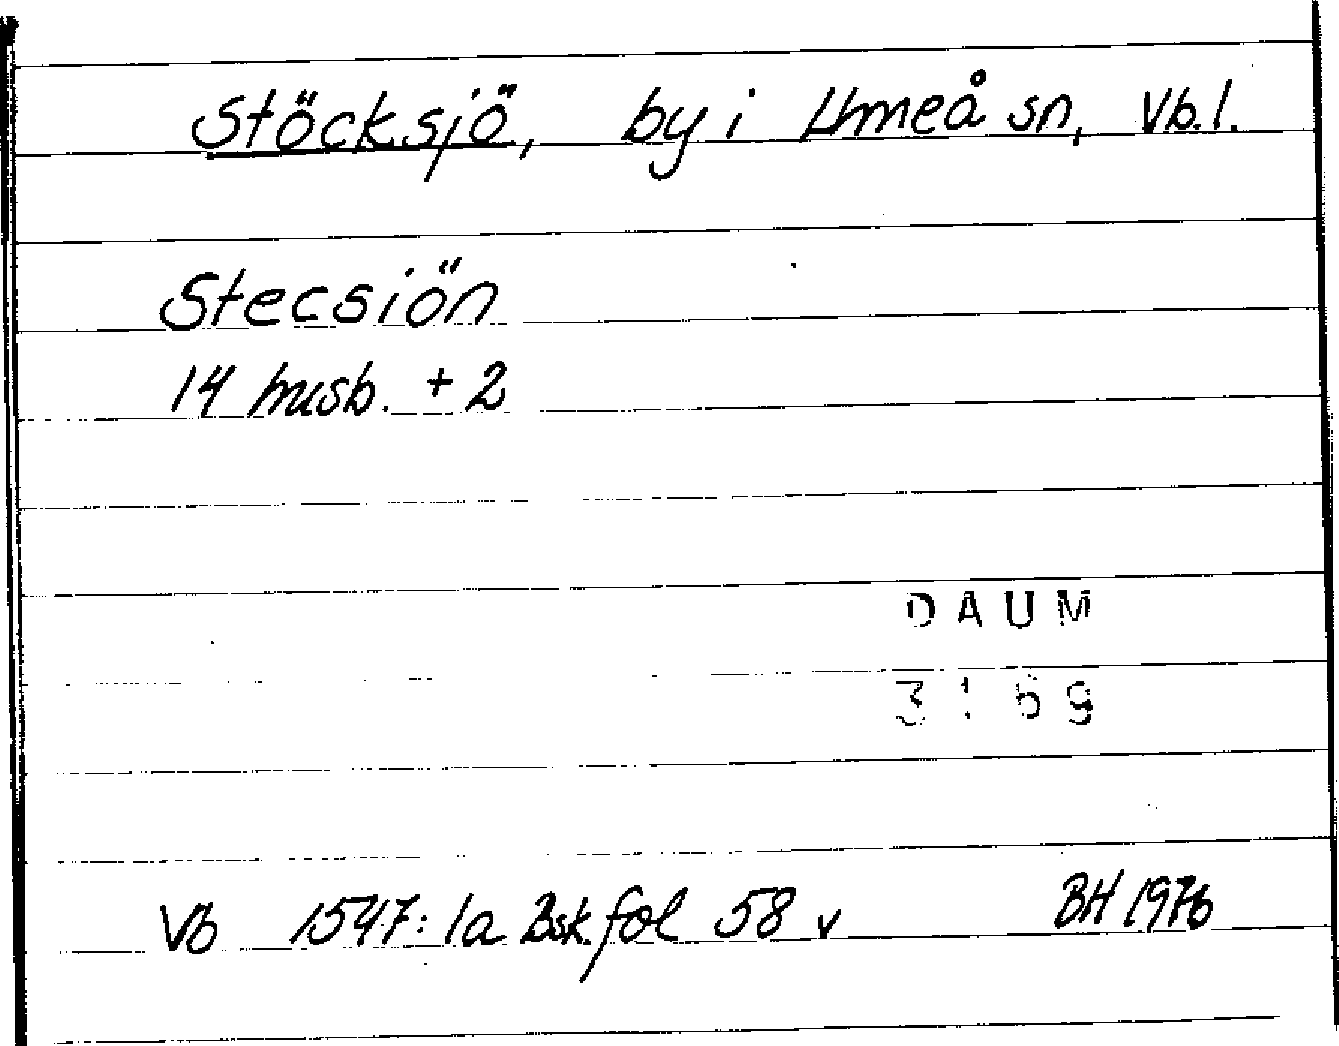 Stöcksjö, by i Umeå sn, Vb.l.
Stecsiön
14 husb. + 2
DAUM
3:69
Vb 1547: 1a Bsk. fol 58 v BH 1976